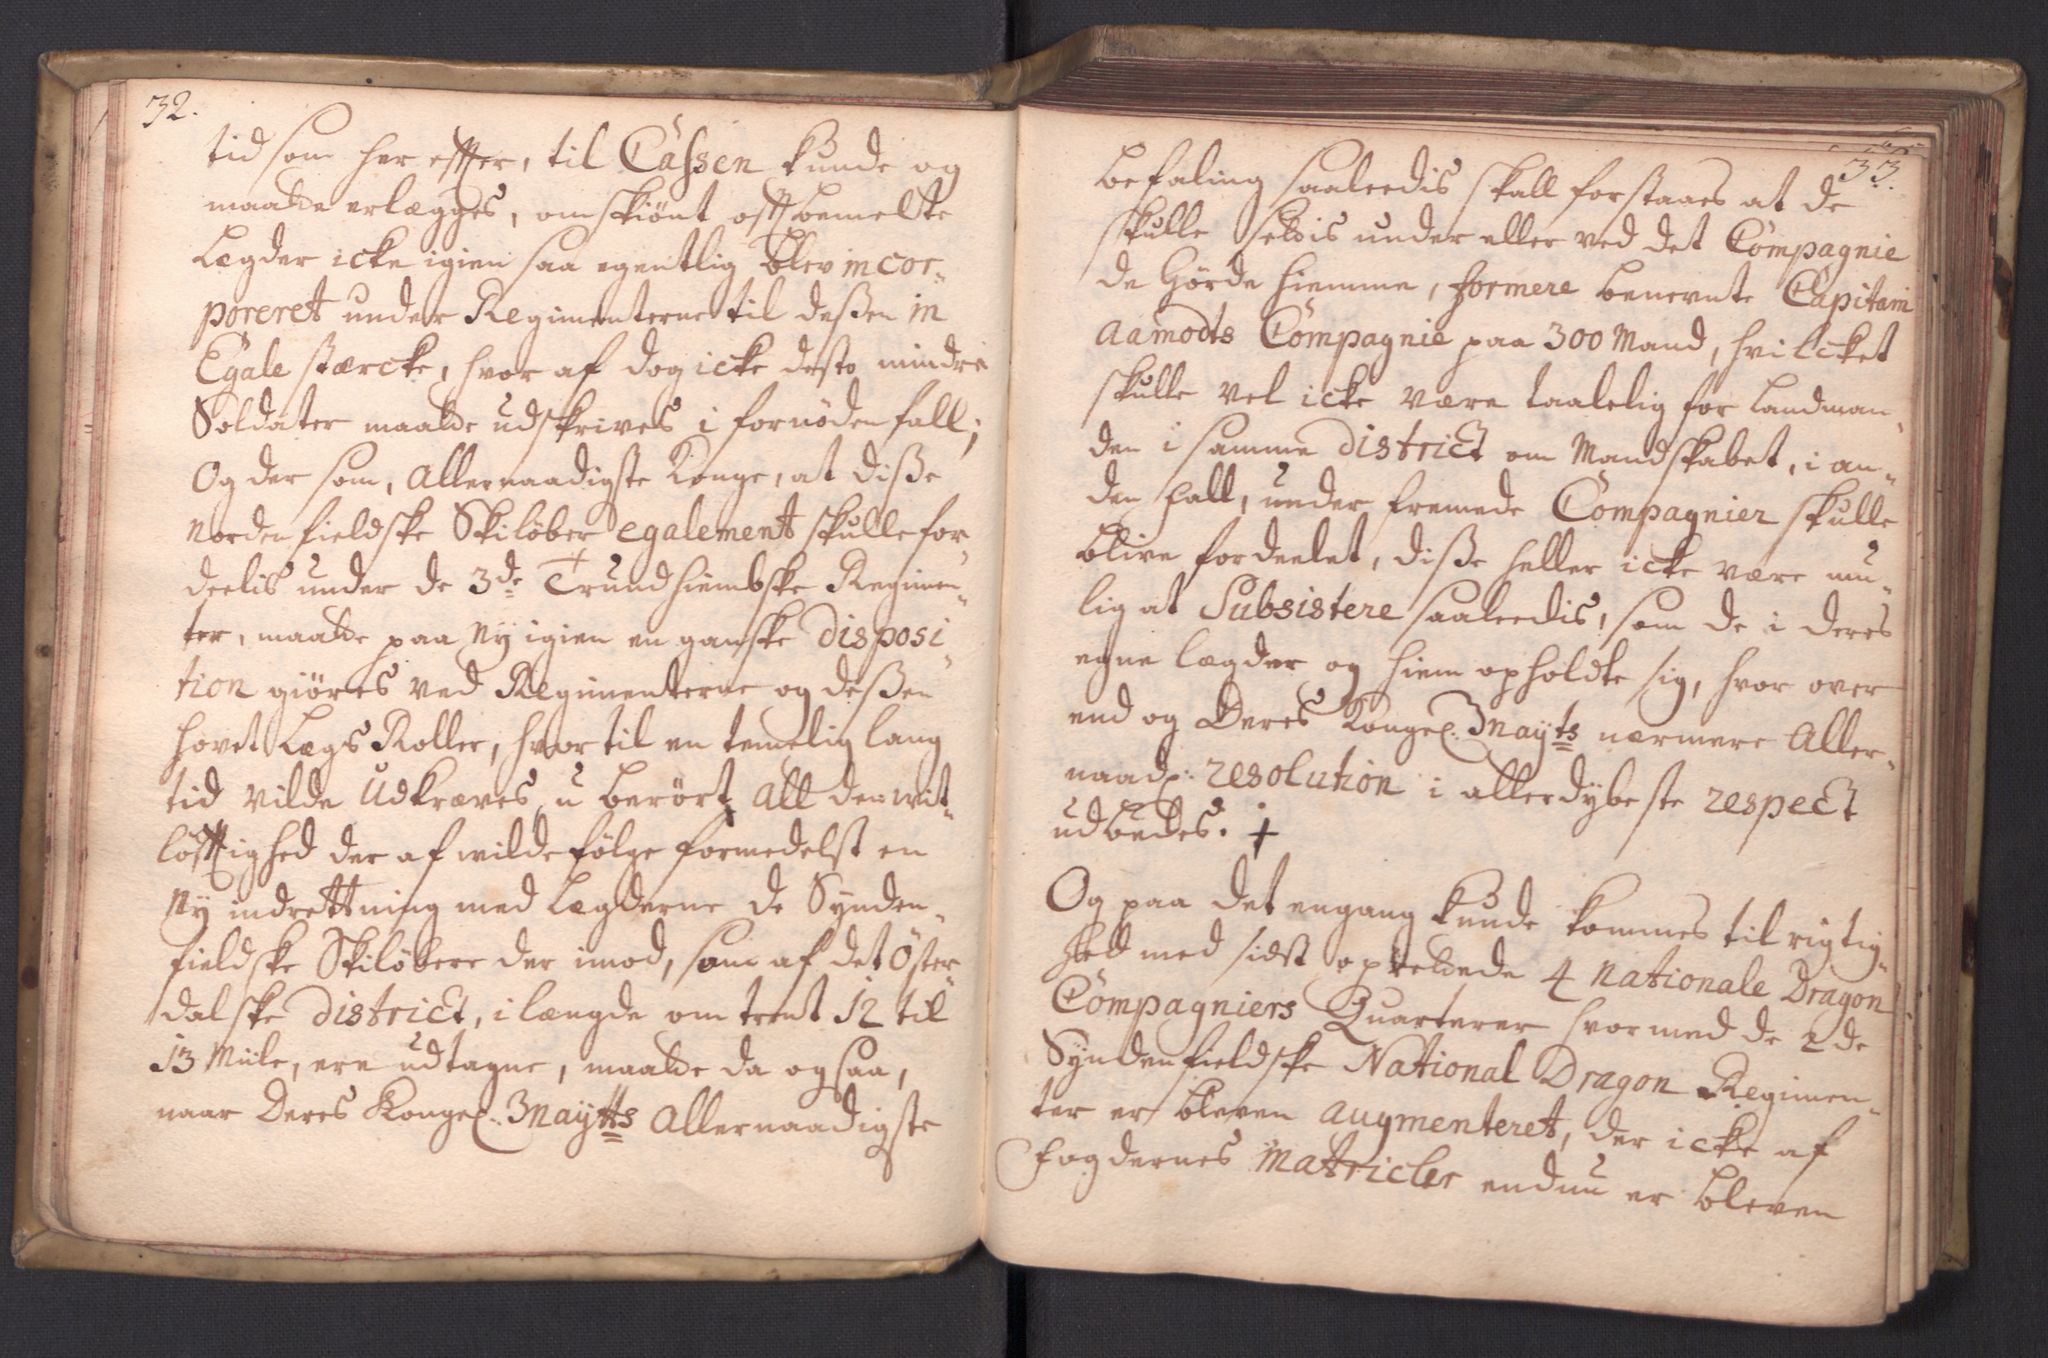 32.
tid som her effter, til Cassen kunde og
maatte erlægges, omskiönt offtbemelte
Lægder icke igien saa egentlig blev incor-
poreret under Regimenterne til deßen in
Egale stærcke, hvor af dog icke desto mindre
Soldater maatte udskrives i fornöden fall;
Og der som, Allernaadigste Konge, at diße
Nordenfieldske Skilöber egalement skulle for-
deelis under de 3de Trundhiembske Regimen-
ter, maatte paa ny igien en ganske disposi-
tion giöres ved Regimenterne og deßen
hovet Lægs Roller, hvortil en temelig lang
tid vilde udkræves, u berört all den wit-
löfftighed der af wilde fölge formedelst en
Ny indrettning med Lægderne de Synden-
fieldske Skilöbere der imod, som af det Öster-
dalske District, i længde omtrent 12 til
13 Miile, ere udtagne, maatte da ogsaa,
naar Deres Kongel. Maytts Allernaadigste
33.
befaling saaleedis skall forstaaes at de
skulle settis under eller ved det Compagnie
de Hörde hiemme, formere benevnte Capitain
Aamodts Compagnie paa 300 Mand, hvilcket
skulle vel icke være taalelig for Landman-
den i samme District om Mandskabet, i an-
den fall, under fremede Compagnier skulle
blive fordeelet, diße heller icke være mu-
lig at Subsistere saaleedis, som de i deres
egne lægder og hiem opholdte sig, hvor over
end og Deres Kongel. Mayts nærmere Aller-
naad: resolution i allerdybeste respect
udbedes. †
Og paa det engang kunde kommes til rigtig-
hed med sidst oprettede 4 Nationale Dragon
Compagniers Quarterer hvormed de 2de
Syndenfieldske National Dragon Regimen-
ter er bleven augmenteret, der icke af
fogdernes Matricler endnu er bleven